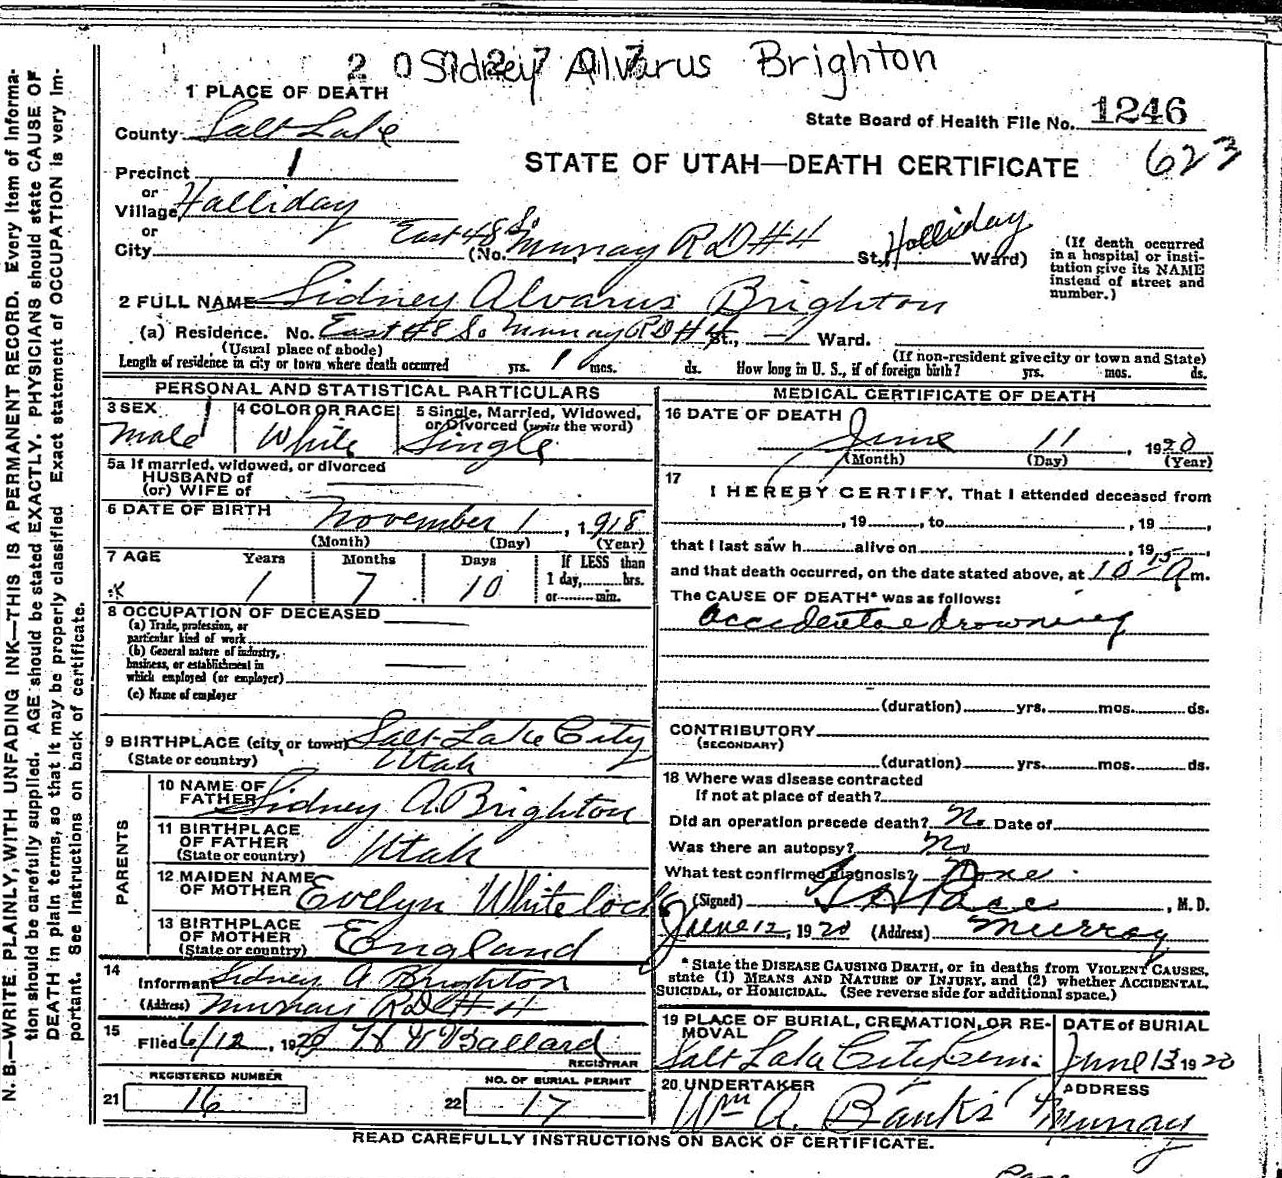 2 0 0 2 7 0 7
Sidney Alvarus Brighton
1 PLACE OF DEATH
County Salt Lake
State Board of Health File No. 1246
623
Precinct 1
STATE OF UTAH—DEATH CERTIFICATE
or
Village Halliday
or
City East 48 So (No. Murray R D #4 St., Halliday Ward)
(If death occurred in a hospital or institution give its NAME instead of street and number.)
2 FULL NAME Sidney Alvarus Brighton
(a) Residence. No. East 48 So Murray R D #4 St., — Ward.
(Usual place of abode)
(If non-resident give city or town and State)
Length of residence in city or town where death occurred yrs. 1 mos. ds. How long in U. S., if of foreign birth? yrs. mos. ds.
PERSONAL AND STATISTICAL PARTICULARS
3 SEX Male
4 COLOR OR RACE White
5 Single, Married, Widowed, or Divorced (write the word) Single
5a If married, widowed, or divorced
HUSBAND of
(or) WIFE of
6 DATE OF BIRTH November 1, 1918
(Month) (Day) (Year)
7 AGE Years Months Days If LESS than
1 7 10 1 day, hrs.
or min.
8 OCCUPATION OF DECEASED
(a) Trade, profession, or
particular kind of work
(b) General nature of industry,
business, or establishment in
which employed (or employer)
(c) Name of employer
9 BIRTHPLACE (city or town) Salt Lake City
(State or country) Utah
PARENTS
10 NAME OF FATHER Sidney A. Brighton
11 BIRTHPLACE OF FATHER (State or country) Utah
12 MAIDEN NAME OF MOTHER Evelyn Whitelock
13 BIRTHPLACE OF MOTHER (State or country) England
14
Informant Sidney A Brighton
(Address) Murray R D #4
15
Filed 6/12, 1920 H W Ballard
REGISTRAR
REGISTERED NUMBER
21 16
NO. OF BURIAL PERMIT
22 17
MEDICAL CERTIFICATE OF DEATH
16 DATE OF DEATH
June 11, 1920
(Month) (Day) (Year)
17
I HEREBY CERTIFY, That I attended deceased from
, 19 , to , 19 ,
that I last saw h alive on , 19 ,
and that death occurred, on the date stated above, at 10 15 A m.
The CAUSE OF DEATH* was as follows:
Accidental drowning
(duration) yrs. mos. ds.
CONTRIBUTORY
(SECONDARY)
(duration) yrs. mos. ds.
18 Where was disease contracted
If not at place of death?
Did an operation precede death? No Date of
Was there an autopsy? No
What test confirmed diagnosis? None
(Signed) , M. D.
June 12, 1920 (Address) Murray
* State the DISEASE CAUSING DEATH, or in deaths from VIOLENT CAUSES,
state (1) MEANS AND NATURE OF INJURY, and (2) whether ACCIDENTAL,
SUICIDAL, or HOMICIDAL. (See reverse side for additional space.)
19 PLACE OF BURIAL, CREMATION, OR REMOVAL
Salt Lake City Cem.
DATE of BURIAL
June 13 1920
20 UNDERTAKER
Wm A. Banks
ADDRESS
Murray
READ CAREFULLY INSTRUCTIONS ON BACK OF CERTIFICATE.
N. B.—WRITE PLAINLY, WITH UNFADING INK—THIS IS A PERMANENT RECORD. Every Item of Informa-
tion should be carefully supplied. AGE should be stated EXACTLY. PHYSICIANS should state CAUSE OF
DEATH in plain terms, so that it may be properly classified. Exact statement of OCCUPATION is very Im-
portant. See Instructions on back of certificate.